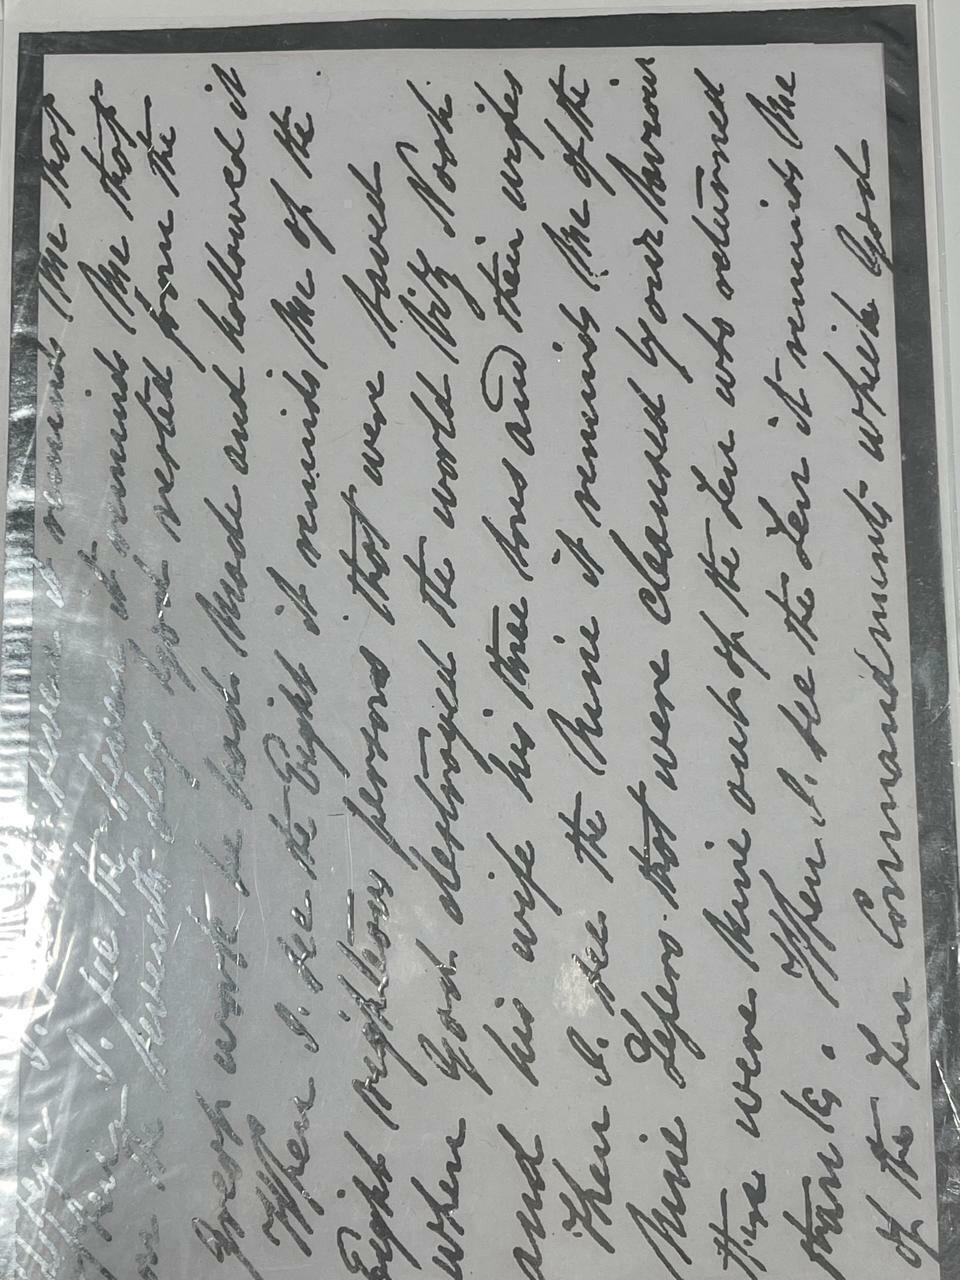 When I. see the seven it reminds Me that
When I. see the Seven it reminds Me that
on the Seventh day God rested from the
Great work he had Made and hollowed it
When I. see the Eight it reminds Me of the
Eight righteous persons that were saved
when God destroyed the world Viz Noah.
and his wife his three sons and their wifes
Then I. see the Nine it reminds Me of the
Nine Lepers that were cleansed
there were Nine out of the Ten who returned
thanks. When I. see the Ten it reminds Me
of the Ten Commandments which God